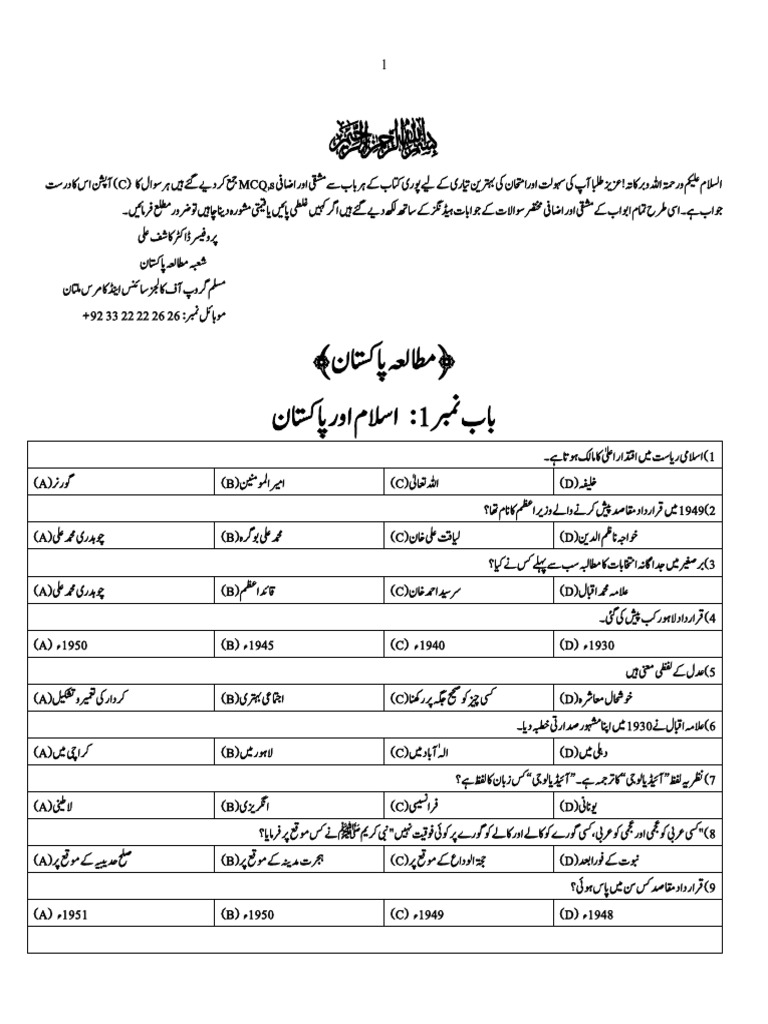 1
بسم اللہ الرحمن الرحیم
السلام علیکم ورحمۃ اللہ وبرکاتہ! عزیز طلبا آپ کی سہولت اور امتحان کی بہترین تیاری کے لیے پوری کتاب کے ہر باب سے مشقی اور اضافی MCQ,s جمع کر دیے گئے ہیں ہر سوال کا (C) آپشن اس کا درست
جواب ہے۔ اسی طرح تمام ابواب کے مشقی اور اضافی مختصر سوالات کے جوابات ہیڈنگز کے ساتھ لکھ دیے گئے ہیں اگر کہیں غلطی پائیں یا قیمتی مشورہ دینا چاہیں تو ضرور مطلع فرمائیں۔
پروفیسر ڈاکٹر کاشف علی
شعبہ مطالعہ پاکستان
مسلم گروپ آف کالجز سائنس اینڈ کامرس ملتان
موبائل نمبر: +92 33 22 22 26 26
﴿مطالعہ پاکستان﴾
باب نمبر 1: اسلام اور پاکستان
1) اسلامی ریاست میں اقتدار اعلیٰ کا مالک ہوتا ہے۔
(A) گورنر (B) امیر المومنین (C) اللہ تعالیٰ (D) خلیفہ
2) 1949 میں قرارداد مقاصد پیش کرنے والے وزیر اعظم کا نام تھا؟
(A) چوہدری محمد علی (B) محمد علی بوگرہ (C) لیاقت علی خان (D) خواجہ ناظم الدین
3) برصغیر میں جداگانہ انتخابات کا مطالبہ سب سے پہلے کس نے کیا؟
(A) چوہدری محمد علی (B) قائد اعظم (C) سر سید احمد خان (D) علامہ محمد اقبال
4) قرارداد لاہور کب پیش کی گئی۔
(A) 1950ء (B) 1945ء (C) 1940ء (D) 1930ء
5) عدل کے لفظی معنی ہیں
(A) کردار کی تعمیر و تشکیل (B) اجتماعی بہتری (C) کسی چیز کو صحیح جگہ پر رکھنا (D) خوشحال معاشرہ
6) علامہ اقبال نے 1930 میں اپنا مشہور صدارتی خطبہ دیا۔
(A) کراچی میں (B) لاہور میں (C) الہٰ آباد میں (D) دہلی میں
7) نظریہ لفظ "آئیڈیالوجی" کا ترجمہ ہے۔ "آئیڈیالوجی" کس زبان کا لفظ ہے؟
(A) لاطینی (B) انگریزی (C) فرانسیسی (D) یونانی
8) "کسی عربی کو عجمی اور عجمی کو عربی، کسی گورے کو کالے اور کالے کو گورے پر کوئی فوقیت نہیں" نبی کریم ﷺ نے کس موقع پر فرمایا؟
(A) صلح حدیبیہ کے موقع پر (B) ہجرت مدینہ کے موقع پر (C) حجۃ الوداع کے موقع پر (D) نبوت کے فوراً بعد
9) قرارداد مقاصد کس سن میں پاس ہوئی؟
(A) 1951ء (B) 1950ء (C) 1949ء (D) 1948ء